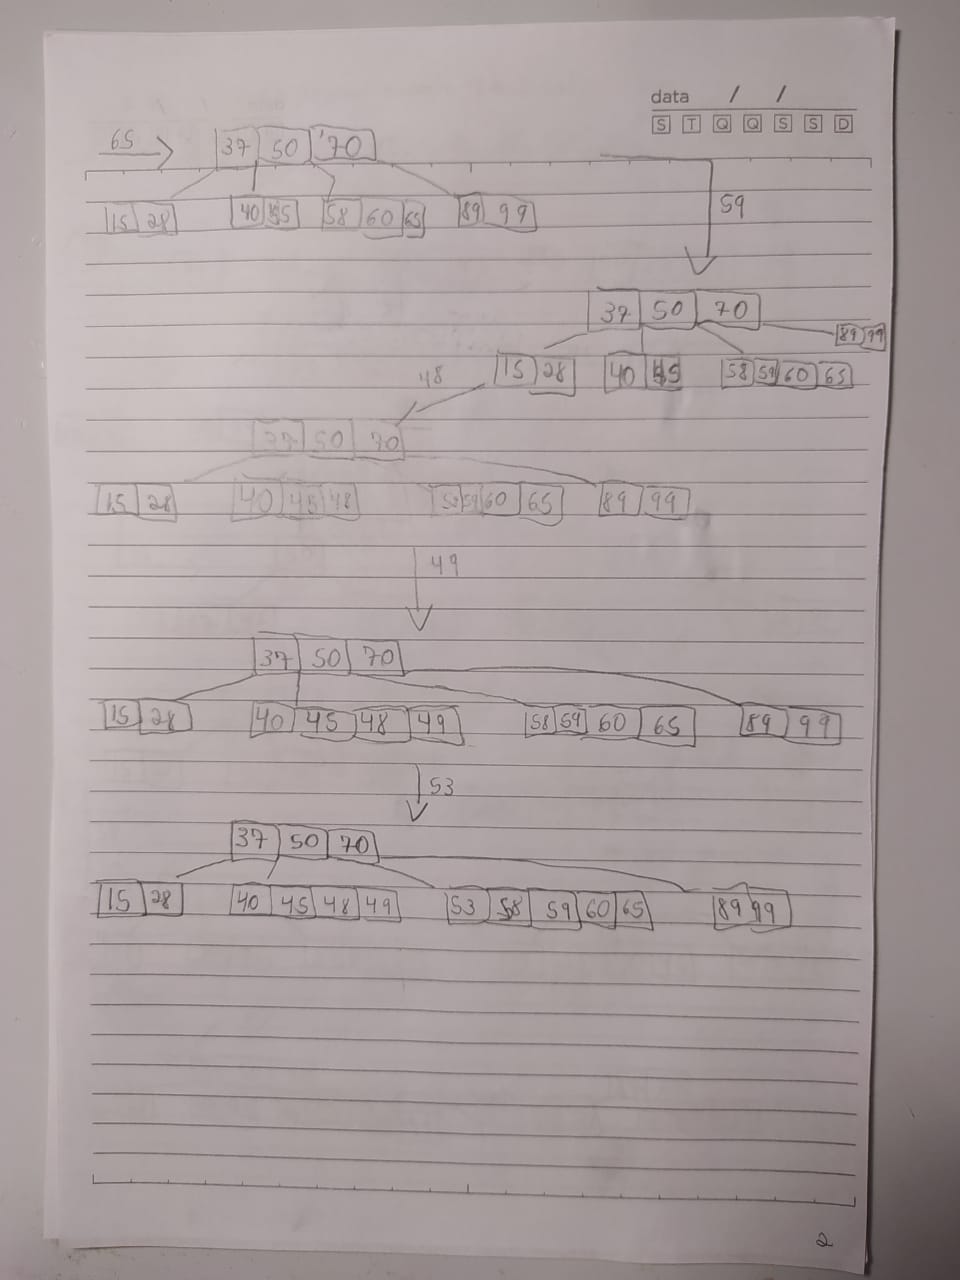 data / /
S T Q Q S S D
65 37 50 70
15 28 40 45 58 60 65 89 99
59
37 50 70
89 99
15 28 40 45 58 59 60 65
48
37 50 70
15 28 40 45 48 58 59 60 65 89 99
49
37 50 70
15 28 40 45 48 49 58 59 60 65 89 99
53
37 50 70
15 28 40 45 48 49 53 58 59 60 65 89 99
2